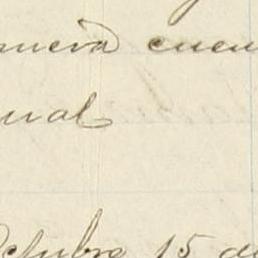 nueva cuen
ual
Octubre 15 de